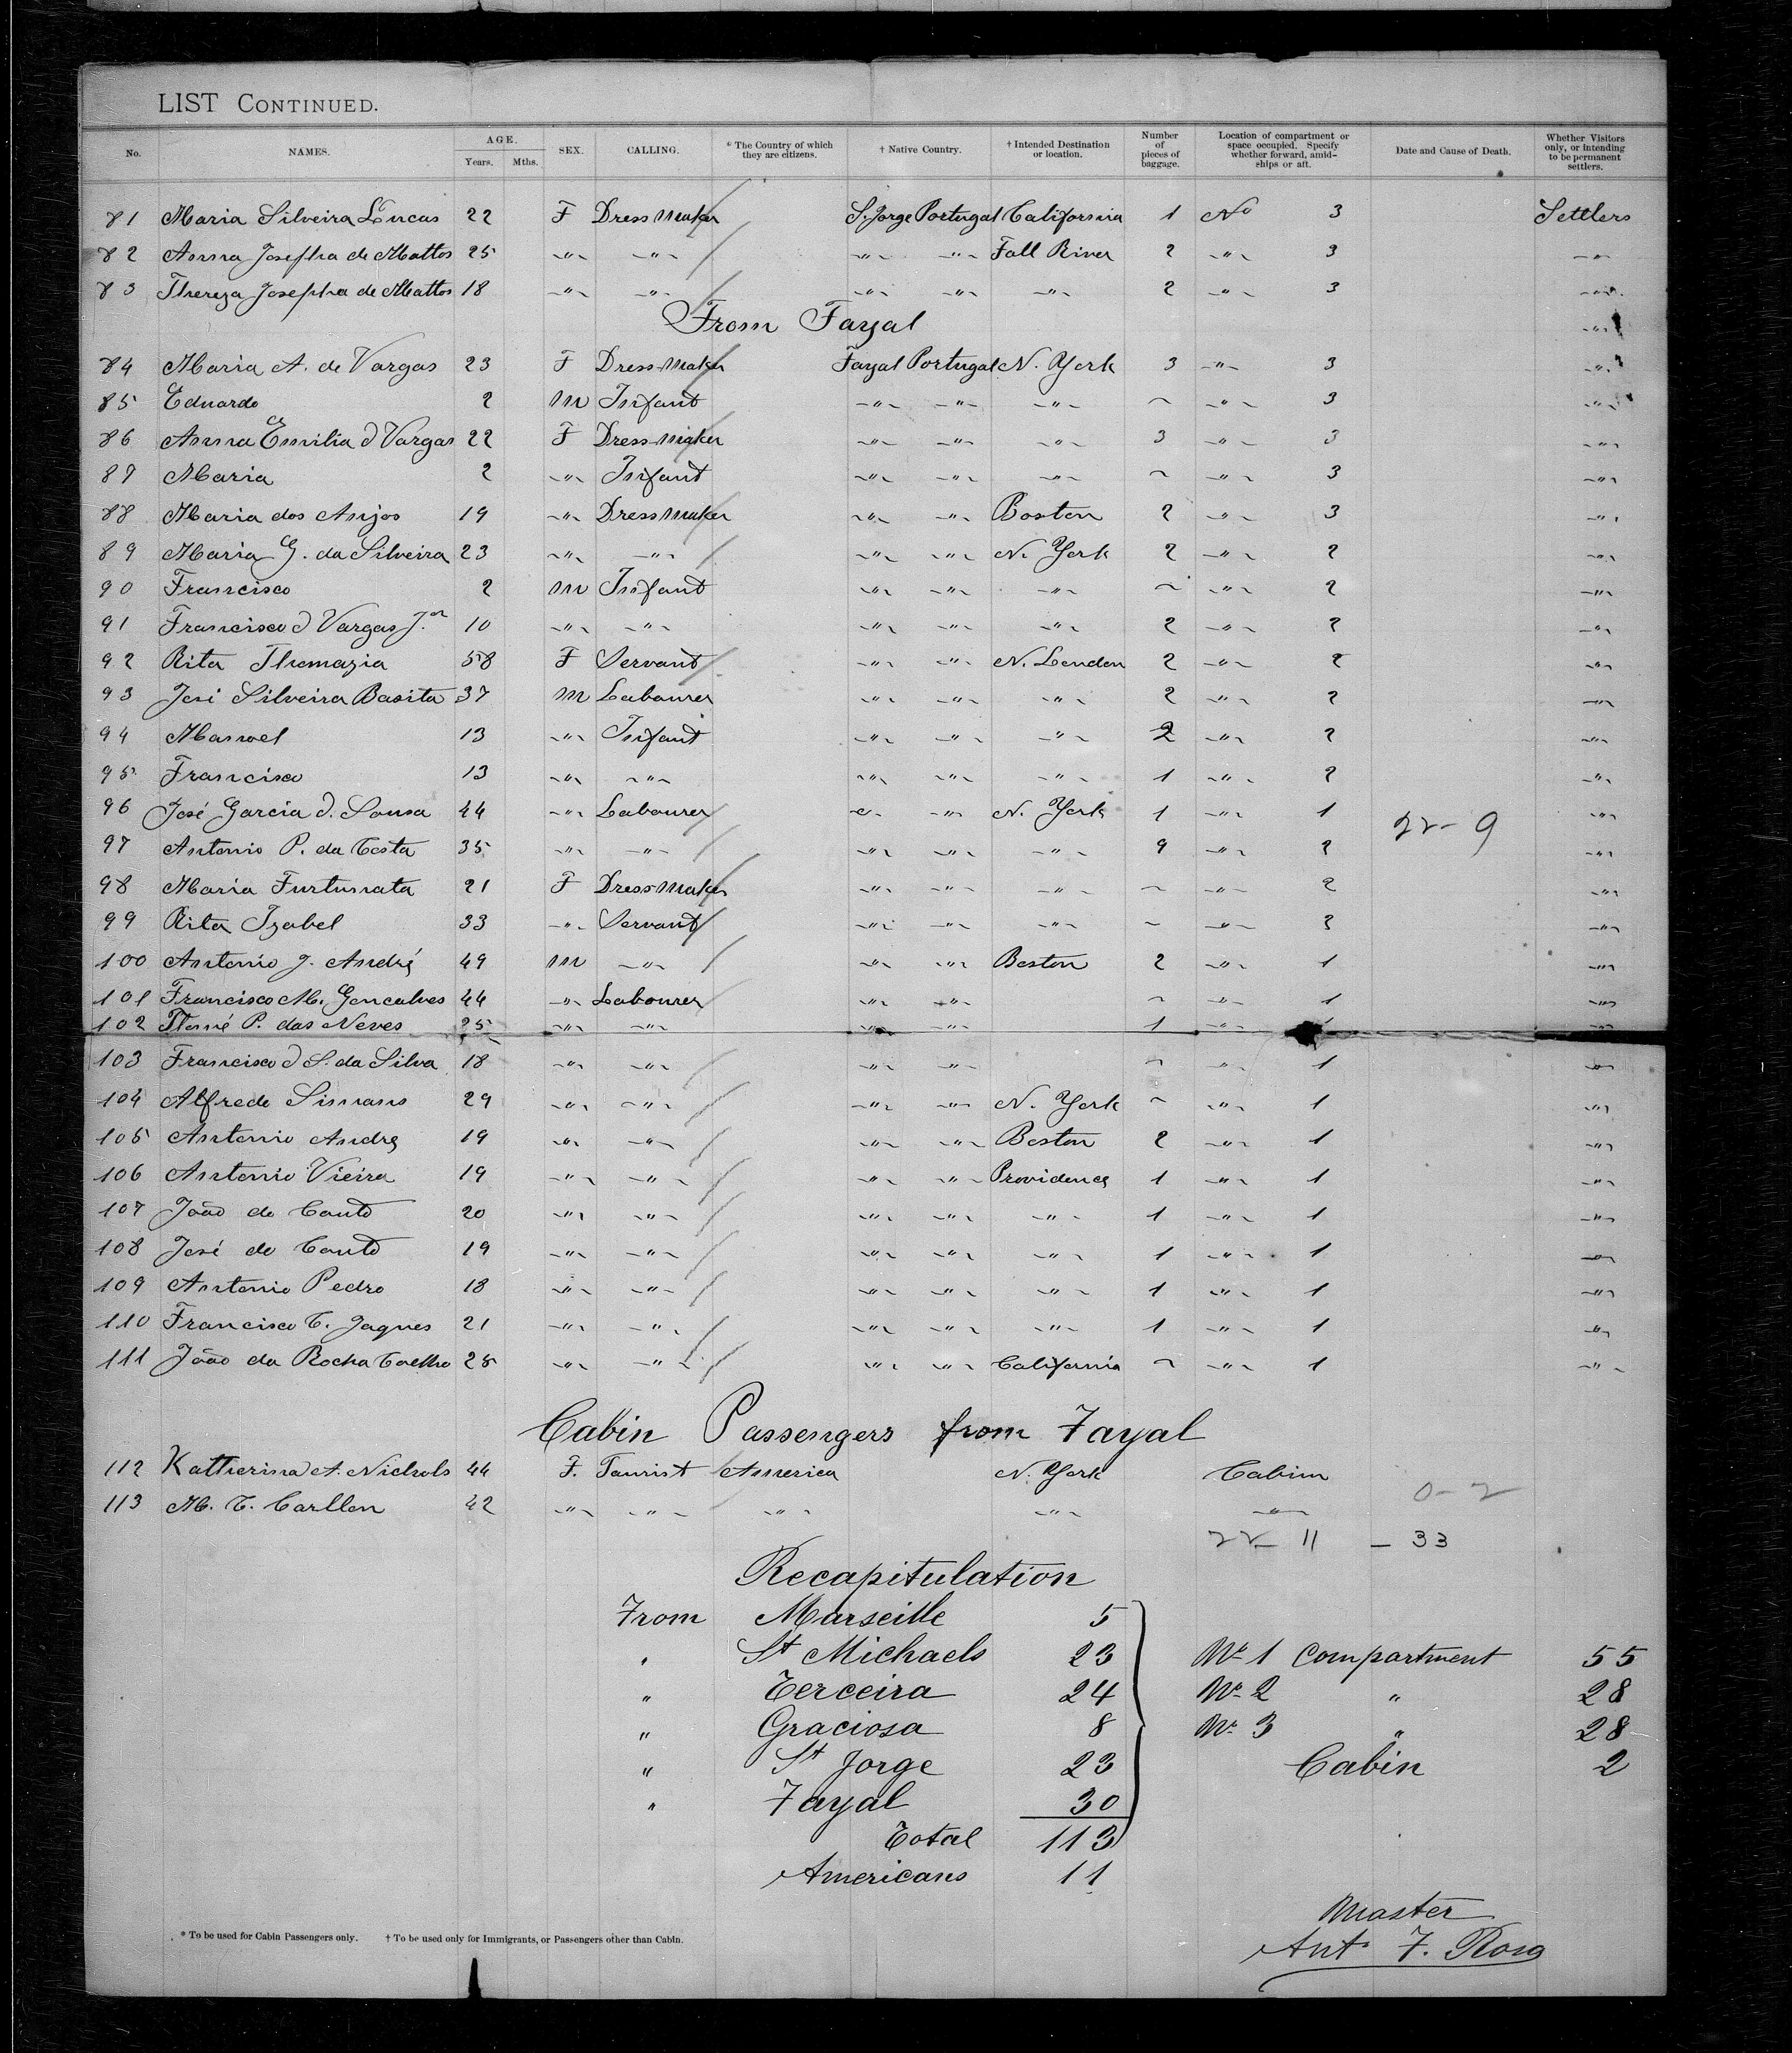 LIST CONTINUED.
No. NAMES. AGE. Years. Mths. SEX. CALLING. * The Country of which they are citizens. † Native Country. † Intended Destination or location. Number of pieces of baggage. Location of compartment or space occupied. Specify whether forward, amid-ships or aft. Date and Cause of Death. Whether Visitors only, or intending to be permanent settlers.
81 Maria Silveira Lucas 22 F Dress maker S. Jorge Portugal California 1 No 3 Settlers
82 Anna Josepha de Mattos 25 -"- -"- -"- -"- Fall River 2 -"- 3 -"-
83 Thereza Josepha de Mattos 18 -"- -"- -"- -"- -"- 2 -"- 3 -"-
From Fayal -"-
84 Maria A. de Vargas 23 F Dress-maker Fayal Portugal N. York 3 -"- 3 -"-
85 Eduardo 2 M Infant -"- -"- -"- ~ -"- 3 -"-
86 Anna Emilia d Vargas 22 F Dress-maker -"- -"- -"- 3 -"- 3 -"-
87 Maria 2 -"- Infant -"- -"- -"- ~ -"- 3 -"-
88 Maria dos Anjos 19 -"- Dress maker -"- -"- Boston 2 -"- 3 -"-
89 Maria G. da Silveira 23 -"- -"- -"- -"- N. York 2 -"- 2 -"-
90 Francisco 2 M Infant -"- -"- -"- ~ -"- 2 -"-
91 Francisco d Vargas J.or 10 -"- -"- -"- -"- -"- 2 -"- 2 -"-
92 Rita Thomazia 58 F Servant -"- -"- N. London 2 -"- 2 -"-
93 José Silveira Basita 37 M Labourer -"- -"- -"- 2 -"- 2 -"-
94 Manoel 13 -"- Infant -"- -"- -"- 2 -"- 2 -"-
95 Francisco 13 -"- -"- -"- -"- -"- 1 -"- 2 -"-
96 José Garcia d. Sousa 44 -"- Labourer -"- -"- N. York 1 -"- 1 22-9 -"-
97 Antonio P. da Costa 35 -"- -"- -"- -"- -"- 9 -"- 2 -"-
98 Maria Furtunata 21 F Dress maker -"- -"- -"- ~ -"- 2 -"-
99 Rita Izabel 33 -"- Servant -"- -"- -"- ~ -"- 2 -"-
100 Antonio J. André 49 M -"- -"- -"- Boston 2 -"- 1 -"-
101 Francisco M. Goncalves 44 -"- Labourer -"- -"- ~ -"- 1 -"-
102 P. das Neves 25 -"- -"- -"- -"- 1 -"- 1 -"-
103 Francisco d S. da Silva 18 -"- -"- -"- -"- ~ -"- 1 -"-
104 Alfredo Simans 29 -"- -"- -"- -"- N. York ~ -"- 1 -"-
105 Antonio Andre 19 -"- -"- -"- -"- Boston 2 -"- 1 -"-
106 Antonio Vieira 19 -"- -"- -"- -"- Providence 1 -"- 1 -"-
107 João do Couto 20 -"- -"- -"- -"- -"- 1 -"- 1 -"-
108 José do Couto 19 -"- -"- -"- -"- -"- 1 -"- 1 -"-
109 Antonio Pedro 18 -"- -"- -"- -"- -"- 1 -"- 1 -"-
110 Francisco C. Jaques 21 -"- -"- -"- -"- -"- 1 -"- 1 -"-
111 João da Rocha Coelho 25 -"- -"- -"- -"- California ~ -"- 1 -"-
Cabin Passengers from Fayal
112 Katherina A. Nichols 44 F. Tourist America N. York Cabin
113 M. C. Carllon 42 -"- -"- -"- -"- -"- 0-2
22 - 11 - 33
Recapitulation
From Marseille 5
" St Michaels 23 No 1 Compartment 55
" Terceira 24 No 2 " 28
" Graciosa 8 No 3 " 28
" St Jorge 23 Cabin 2
" Fayal 30
Total 113
Americans 11
Master
Anto F. Rosa
* To be used for Cabin Passengers only. † To be used only for Immigrants, or Passengers other than Cabin.